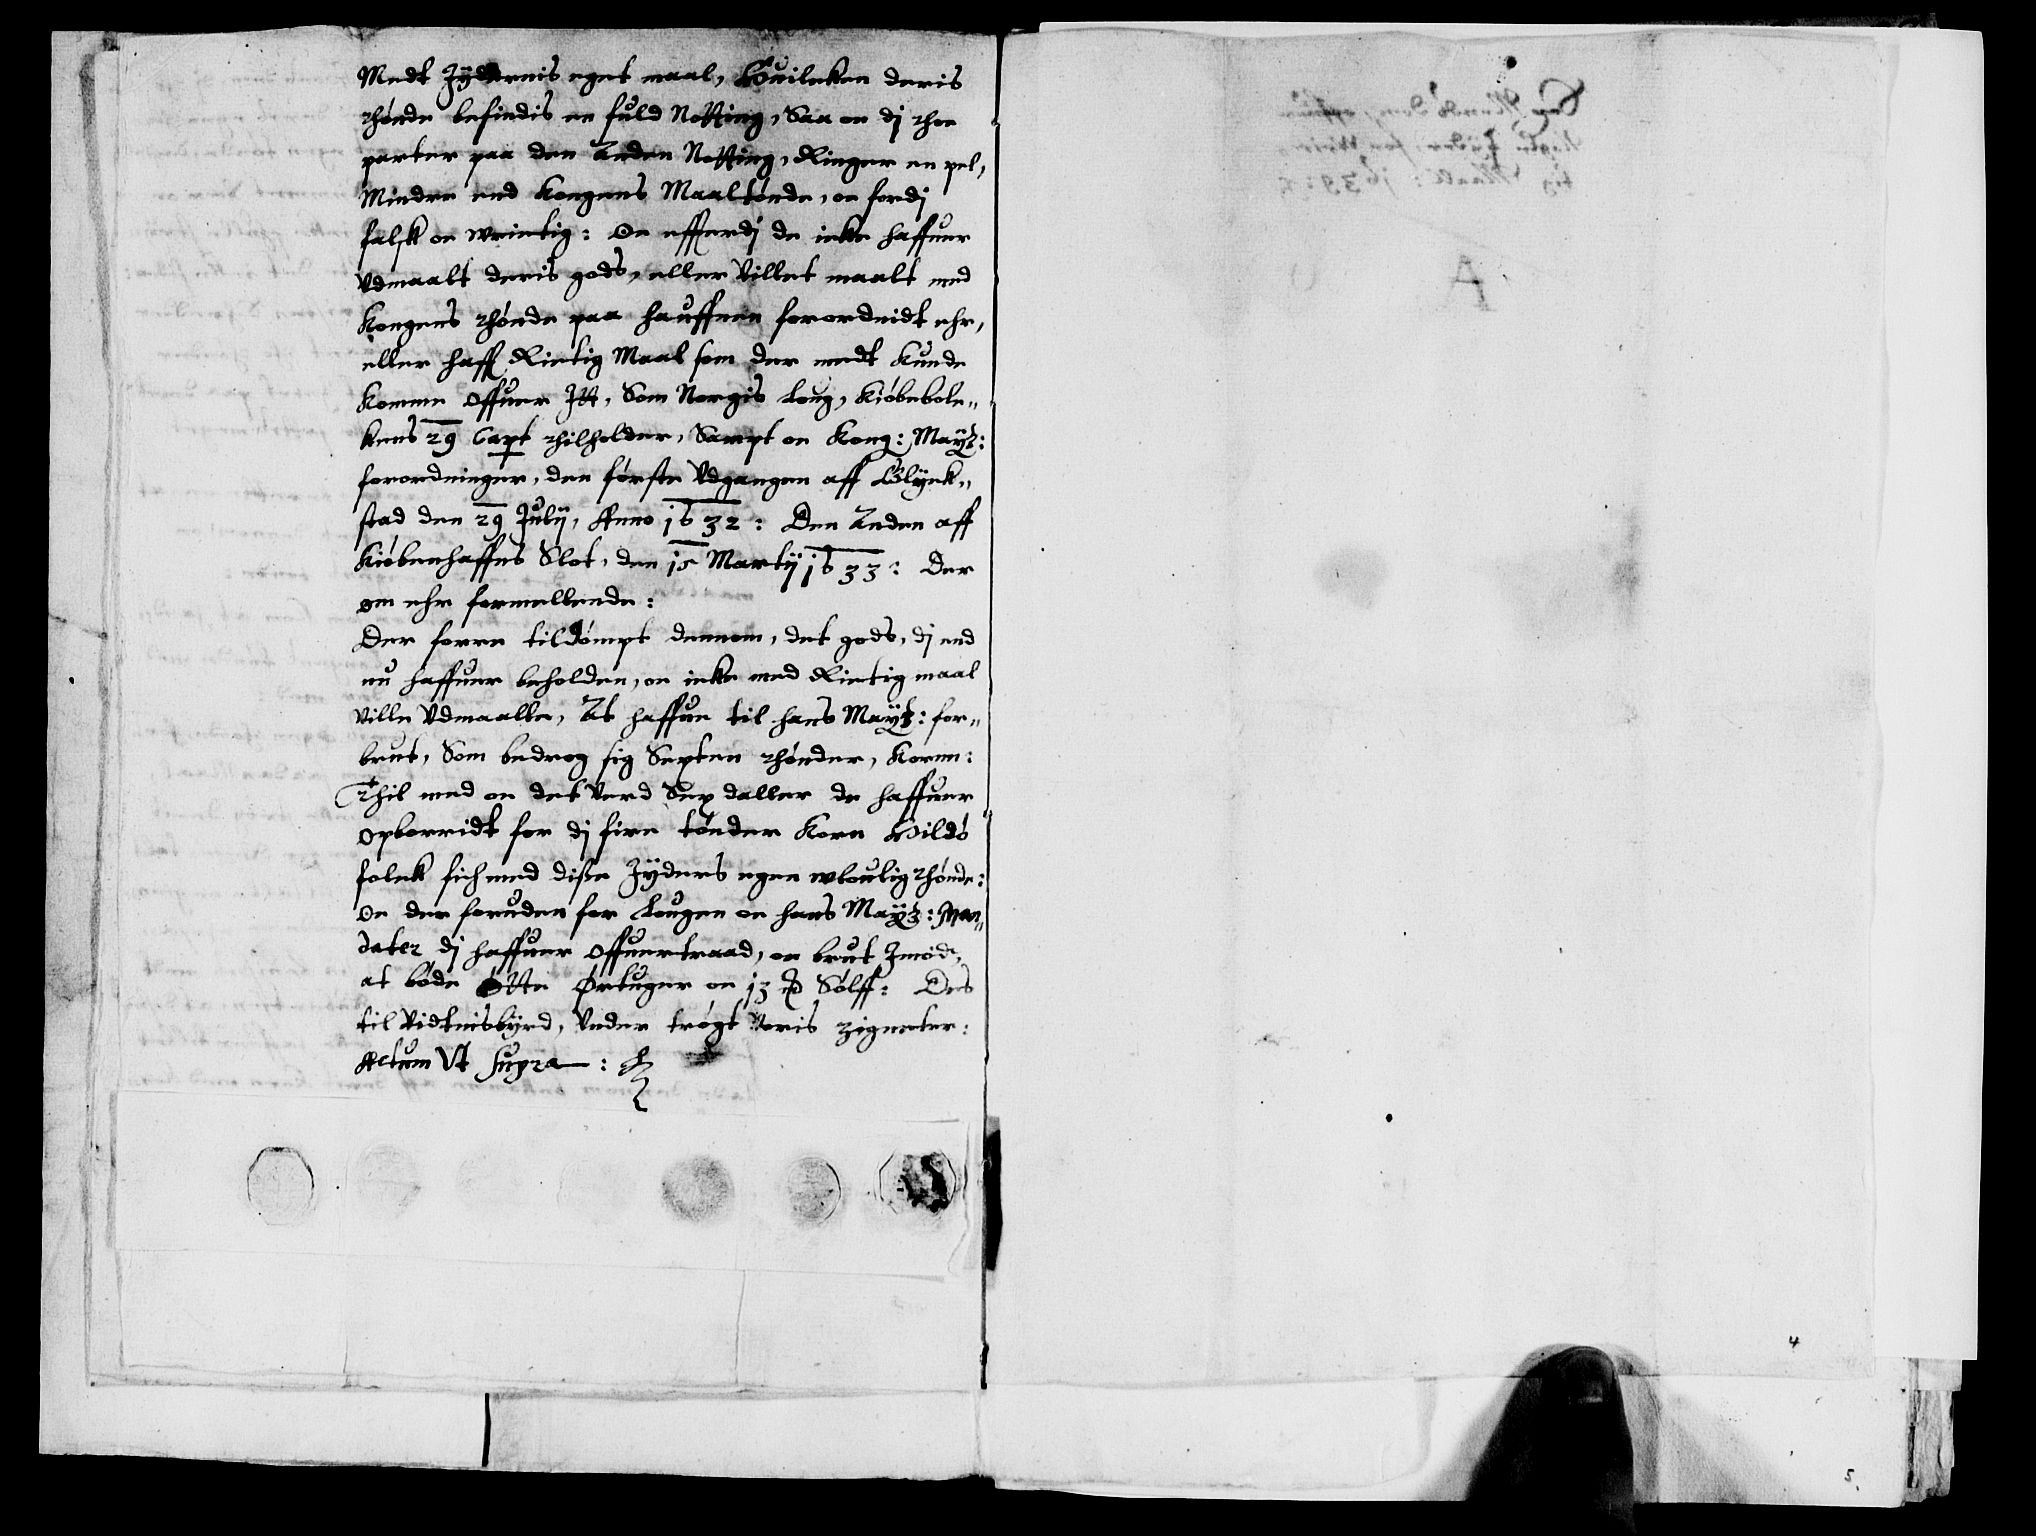 Medt Jydernis eget maal, Huilcken deris
thønde befindis en fuld Notting, Saa oc dj thoe
parter paa den Anden Notting, Ringer en pel,
Mindre end Kongens Maaltønde, oc fordj
falsk oc wrictig: Oc efferdj de icke haffuer
Vdmaalt deris gods, eller Villet maalt med
Kongens thønde paa hauffnen forordnidt ehr,
eller haff Rictig Maal som der medt Kunde
Komme Offuer Itt, Som Norgis Loug, Kiøbebole„
kens 29 Capt thilholder, Sampt oc Kong: Maytz:
forordninger, den første Vdgangen aff Glyck„
stad den 29 Julij, Anno 1632: Den Anden aff
Kiøbenhaffns Slot, den 15 Martij 1633: Der
om ehr formellende:
Der forre tildømpt dennom, det gods, dj end
nu haffuer beholden, oc icke med Rictig maal
Ville Vdmaalle, At haffue til hans Maytz: for„
brut, Som bedrog sig Sexten thønder, Korn:
Thil med oc det Verd Sex daller de haffuer
Opborridt for dj fire tønder Korn
folck fich med disse Jyders egen wloulig thønde:
Oc der foruden for Lougen oc hans Maytz: Man„
dater dj haffuer Offuertraad, oc brut Imod,
at bøde Otte Ørtuger oc 13 Sølff: Des
til Vidtnisbyrd, Vnder trøgt Voris zigneter:
Actum Vt supra:
A
4
5